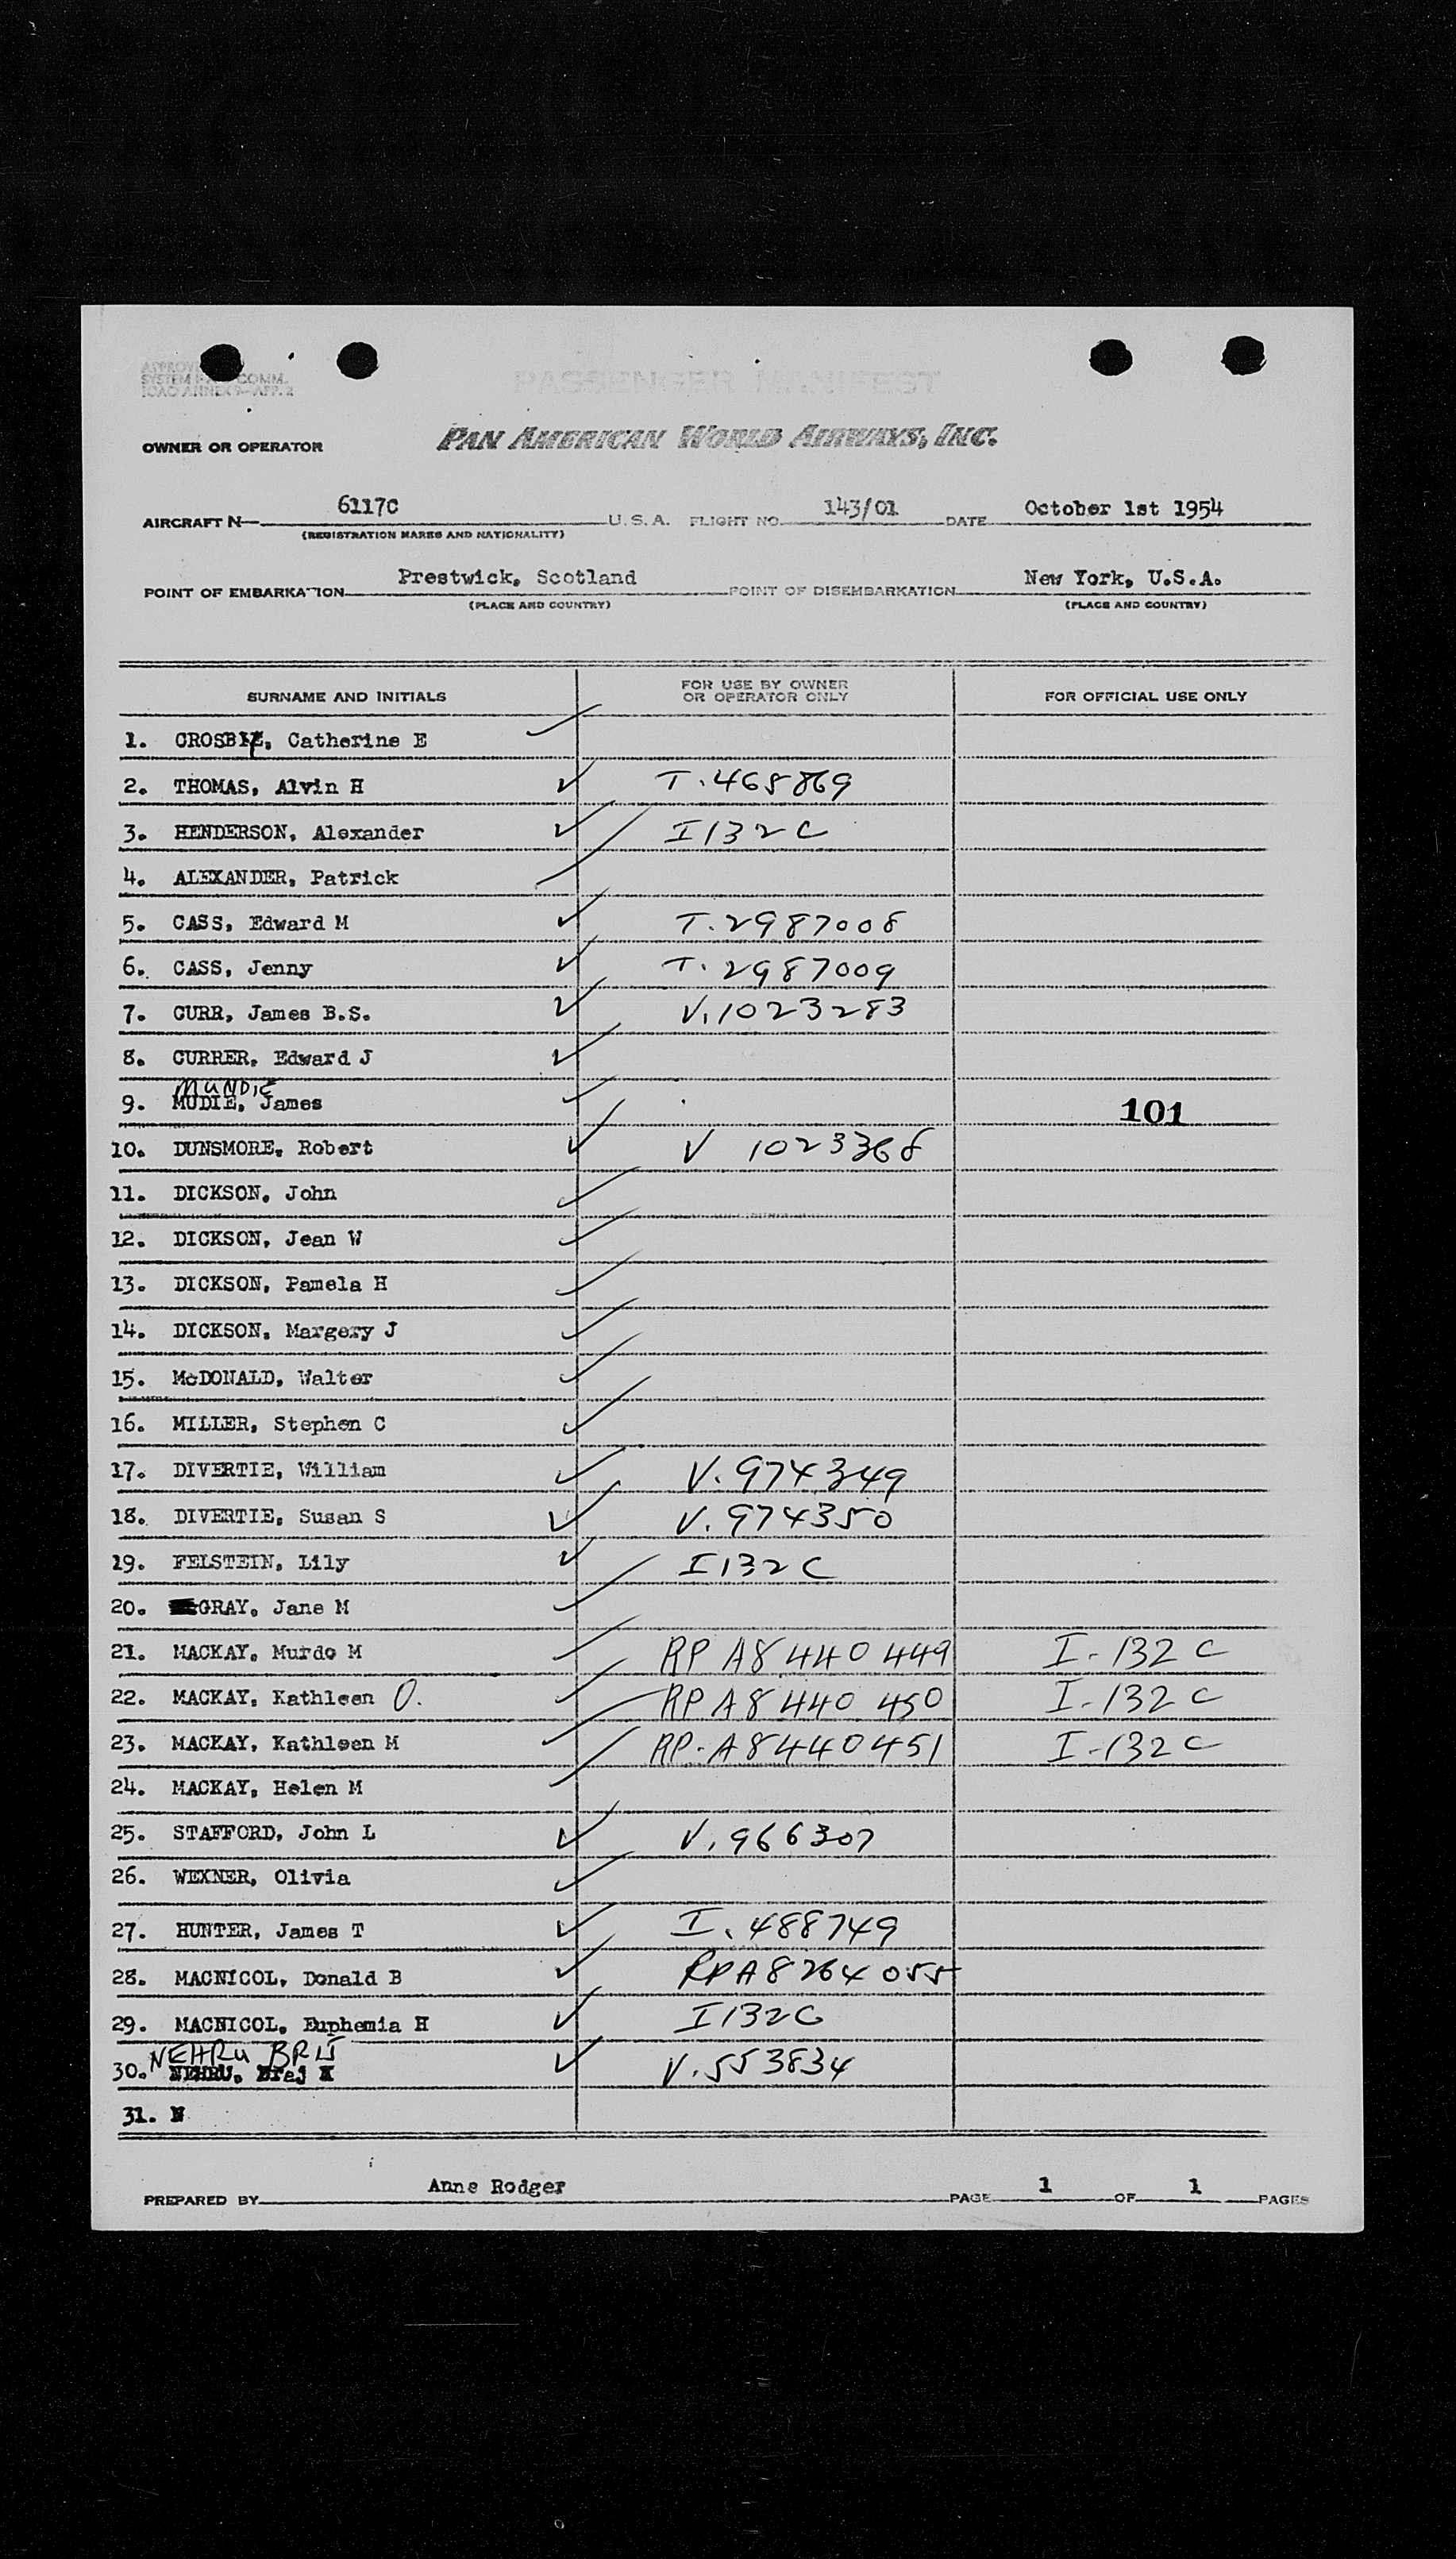 APPROV
SYSTEM F COMM.
ICAO ANNEX 9—APP. 2
PASSENGER MANIFEST
OWNER OR OPERATOR PAN AMERICAN WORLD AIRWAYS, INC.
AIRCRAFT N— 6117C U.S.A. FLIGHT NO. 143/01 DATE October 1st 1954
(REGISTRATION MARKS AND NATIONALITY)
POINT OF EMBARKATION Prestwick, Scotland POINT OF DISEMBARKATION New York, U.S.A.
(PLACE AND COUNTRY) (PLACE AND COUNTRY)
SURNAME AND INITIALS FOR USE BY OWNER OR OPERATOR ONLY FOR OFFICIAL USE ONLY
1. Catherine E
2. THOMAS, Alvin H T.468869
3. HENDERSON, Alexander I132C
4. ALEXANDER, Patrick
5. CASS, Edward M T.2987008
6. CASS, Jenny T.2987009
7. CURR, James B.S. V.1023283
8. CURRER, Edward J
MUNDIE
9. MUDIE, James 101
10. DUNSMORE, Robert V 1023368
11. DICKSON, John
12. DICKSON, Jean W
13. DICKSON, Pamela H
14. DICKSON, Margery J
15. McDONALD, Walter
16. MILLER, Stephen C
17. DIVERTIE, William V.974349
18. DIVERTIE, Susan S V.974350
19. FELSTEIN, Lily I132C
20. GRAY, Jane M
21. MACKAY, Murdo M RP A8 440 449 I-132 C
22. MACKAY, Kathleen O. RP A8 440 450 I-132 C
23. MACKAY, Kathleen M RP-A8440451 I-132 C
24. MACKAY, Helen M
25. STAFFORD, John L V.966307
26. WEXNER, Olivia
27. HUNTER, James T I.488749
28. MACNICOL, Donald B RPA8264055
29. MACNICOL, Euphemia H I132C
NEHRU BRIJ
30. NEHRU, Braj K V.553834
31. N
PREPARED BY Anne Rodger PAGE 1 OF 1 PAGES